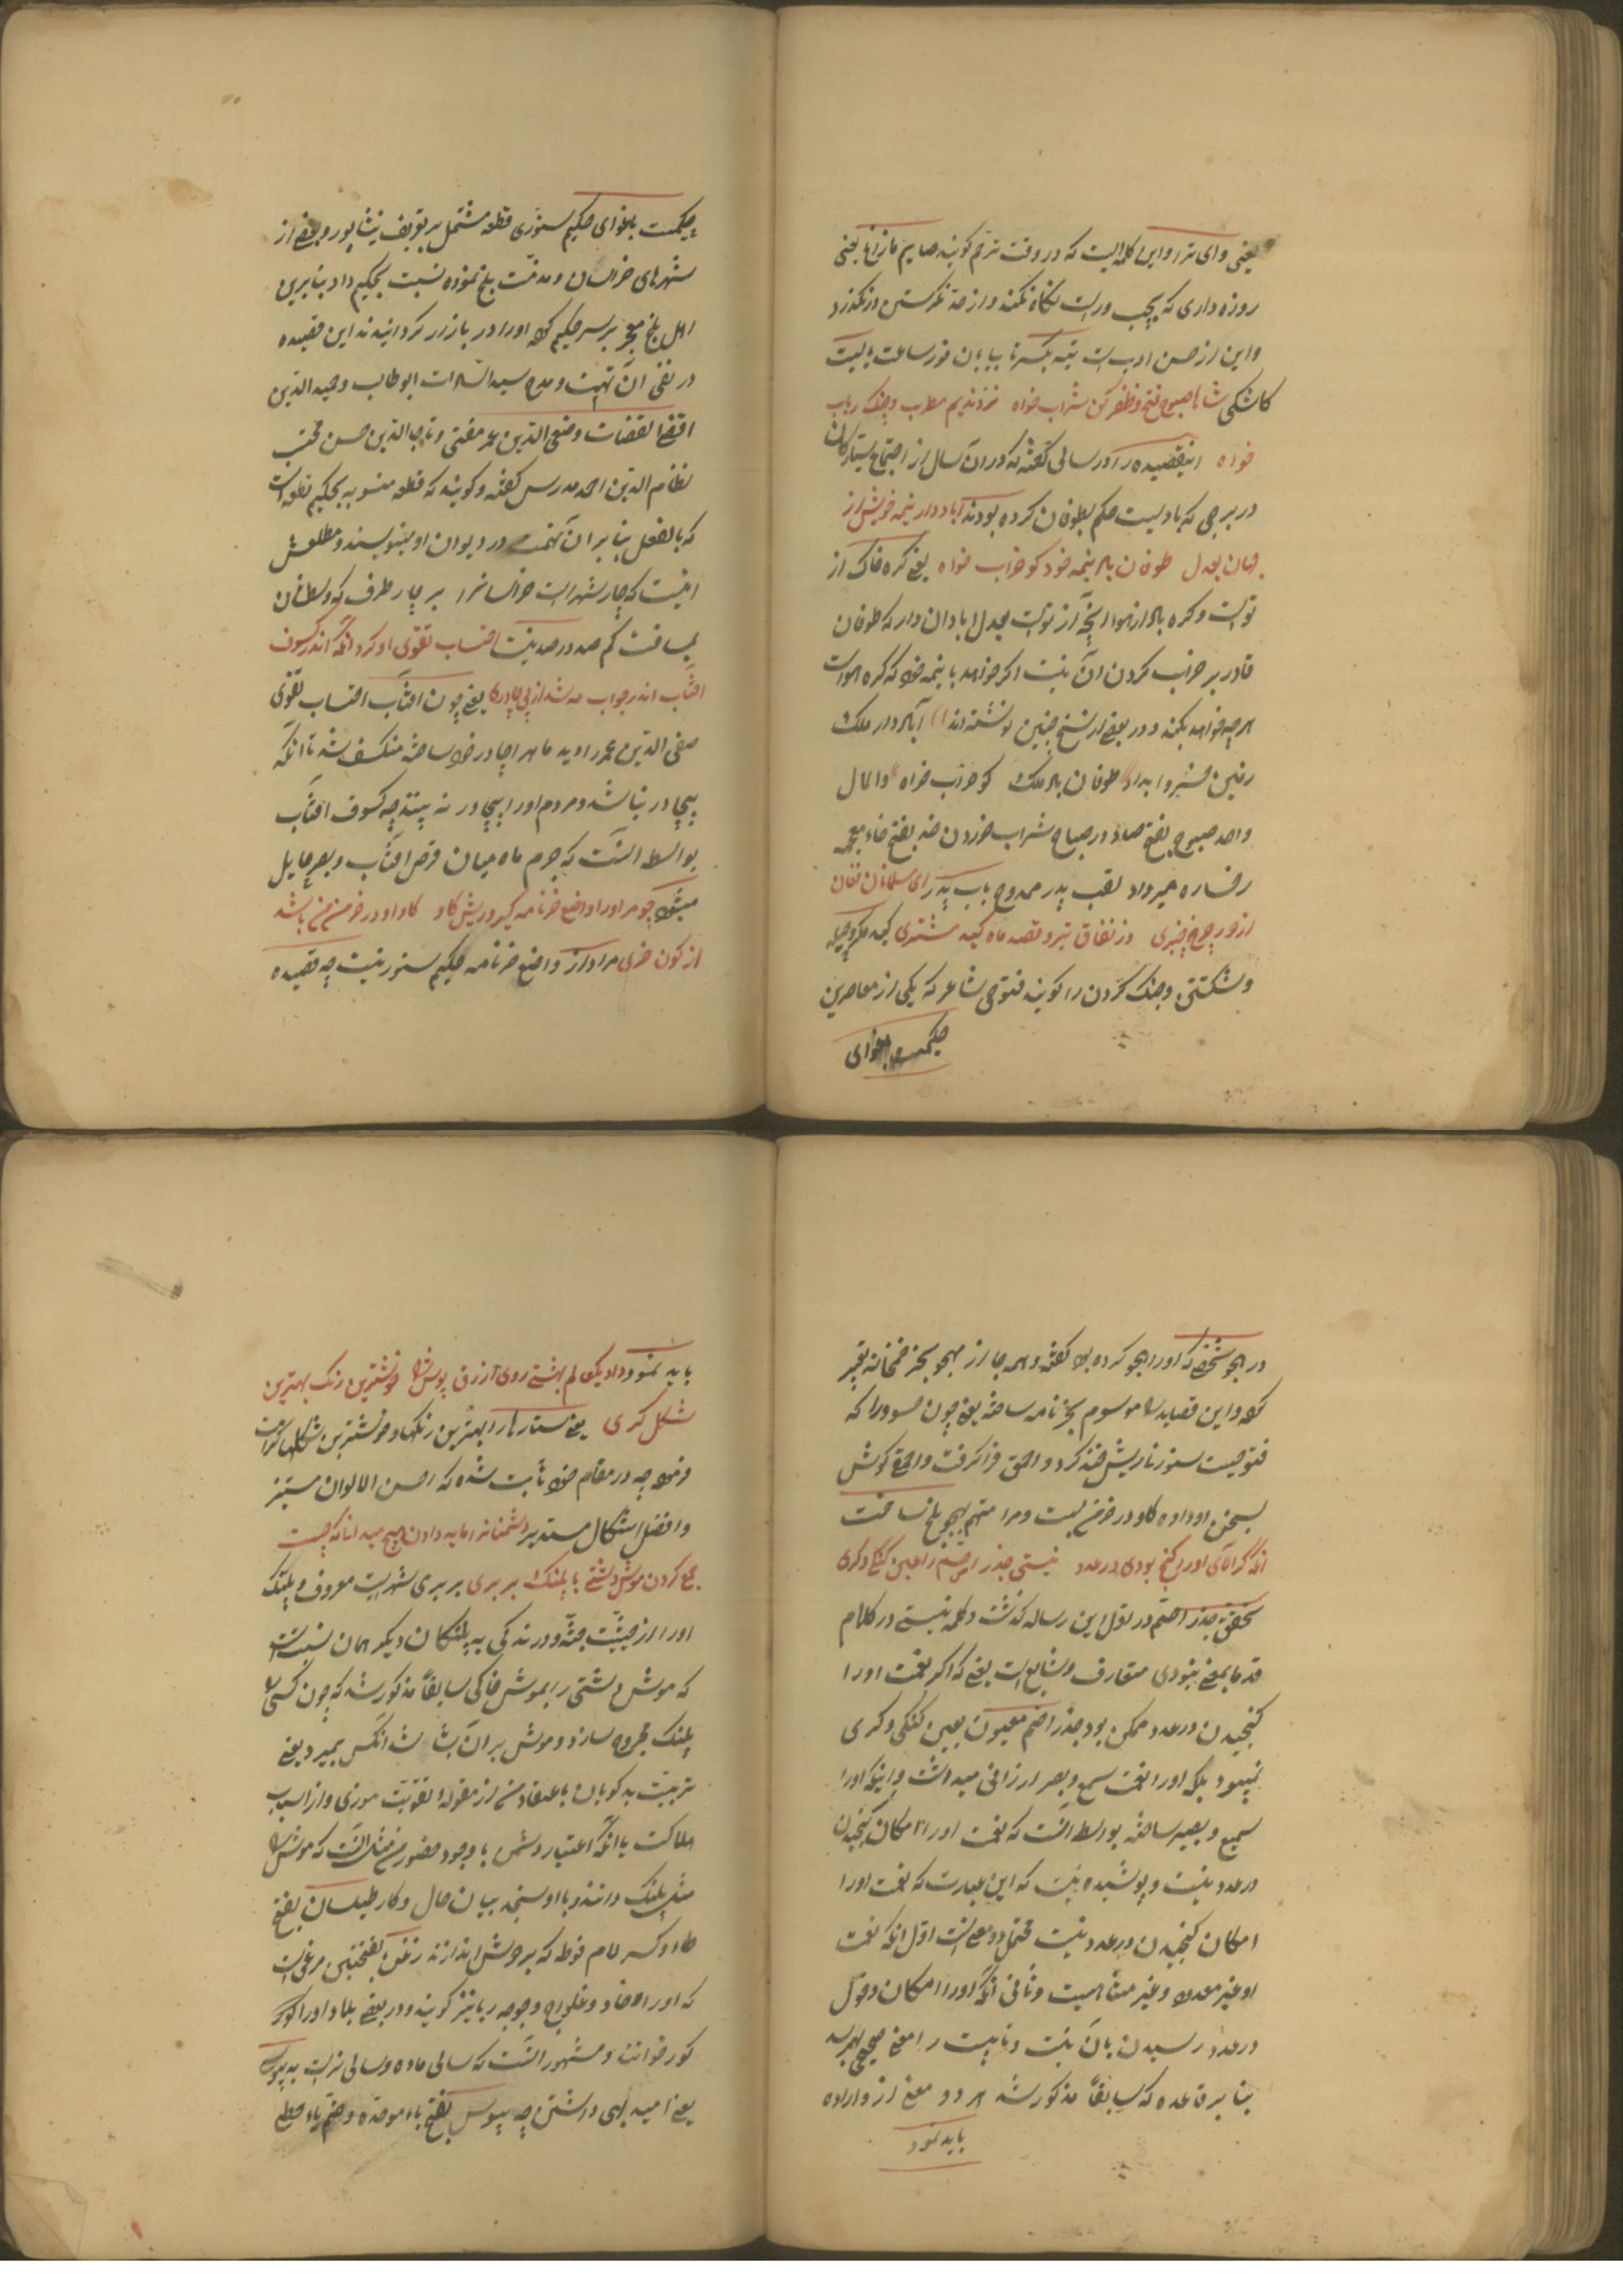 یعنی وای تر رو این کلمه ایست که در وقت ترحم گویند صایم مازاغ یعنی
روزه داری که بچپ و راست نگاه نکند و از حد نگرستن در نگذرد
و این از حسن ادب است تیه بکسر تا بیابان خور ساعت بالیت
کاشکی شاها صبوح فتح و ظفر کن شراب خواه نرد ندیم مطرب و چنگ رباب
خواه اینقصیده را در سالی گفته که در آن سال از اجتماع سیارکان
در برجی که بادیست حکم بطوفان کرده بودند آباد دار نیمه خویش از
جهان بعدل طوفان باد نیمه خود کو خراب خواه یعنی کره خاک از
تو است و کره باد از هوا آنچه از تو است بعدل ابادان دار که طوفان
قادر بر خراب کردن آن نیست اگر خواهد با نیمه خود که کره هواست
هرچه خواهد بکند و در بعضی از نسخ چنین نوشته اند آباد دار ملک
زمین خسروا بداد طوفان باد ملک کو خراب خواه والمال
واحد صبوح بفتح صاد در صباح شراب خوردن خد بفتح خاء معجمه
رخساره میرداد لقب پدر ممدوح باب پدر ای مسلمانان فغان
از دور چرخ چنبری وز نفاق تیر و قصد ماه کید مشتری کید مکر و حیله
و شکستن و جنک کردن را کویند فتوحی شاعر که یکی از معاصرین
حکیمست باغوای
حکیمست باغوای حکیم سنوری قطعه مشتمل بر تعریف نیشاپور و بعضی از
شهرهای خراسان و مذمت بلخ نموده نسبت بحکیم داد بنابرین
اهل بلخ معجر بر سر حکیم کرد اورا در بازار کردانیدند این قصیده
در نفی آن تهمت و مدح سید السادات ابو طالب و حمید الدین
اقضی القضات و صفی الدین عمر مفتی و تاج الدین حسن محتسب
نظام الدین احمد مدرس کفته و کویند که قطعه منسوبه بحکیم قطعه است
که بالفعل بنا بر آن تهمت در دیوان او مینویسند و مطلعش
اینست که چار شهر است خراسانرا بر چار طرف که وسطشان
بمسافت کم صد در صد نیست احتساب تقوی او کرد آنکه اندر کسوف
افتاب اندر حجاب مه شد از بی چادری یعنی چون افتاب احتساب تقوی
صفی الدین عمر را دید ماه را چادر خود ساخته منکسف شد تا آنکه
بیچادر نباشد و مردم اورا بیچادر نه بینند چه کسوف افتاب
بواسطه آنست که جرم ماه میان قرص افتاب و بصر حایل
میشود چو مر اورا واضع خرنامه کیرد ریش کاو کاو او در خرمن من باشد
از کون خری مراد از واضع خرنامه حکیم سنوریست چه قصیده
در هجو شخصی که اورا هجو کرده بود کفته و همه جا از مهجو بخر خمخانه تعبیر
کرد و این قصاید را موسوم بخرنامه ساخته یعنی چون حسود را که
فتوحیست سنور ناریش خند کرد و احمق فرا کرفت و احمق کوش
بسخن او داده کاو در خرمن بست و مرا متهم بهجو بلخ ساخت
آنکه گر آلای اورا کنج بودی در عدد نیستی جذر اصم را عین گنگی و کری
تحقیق جذر اصم در اول این رساله کذشت و کلمه نیستی در کلام
قدما بمعنی نبودی متعارف و شایع است یعنی که اگر نعمت اورا
کنجیدن در عدد ممکن بود جذر اصم معیون بعین کنکی و کری
نمیبود بلکه اورا نعمت سمع و بصر ارزانی میداشت و اینکه اورا
سمیع و بصیر ساخته بواسطه آنست که نعمت اورا امکان کنجیدن
در عدد نیست و پوشیده نیست که این عبارت که نعمت اورا
امکان کنجیدن در عدد نیست محتمل دو معنی است اول آنکه نعمت
او غیر معدود و غیر متناهیست و ثانی آنکه اورا امکان دخول
در عدد رسیدن بآن نیست و تا بیت را معنی صحیح بهم رسد
بنا بر قاعده که سابقاً مذکور شد هر دو معنی ازو اراده
باید نمود
باید نمود داد یکعالم بهشتی روی ازرق پوش را خوشترین رنک بهترین
شکل کری یعنی ستارها را بهترین رنکها و خوشترین شکلها کرامت
فرمود چه در مقام خود ثابت شده که احسن الالوان مستنیر
و افضل اشکال مستدیر دشمنانرا مایه دادن هیچ میدانی که چیست
جمع کردن موش دشتی با پلنک بربری بربری شهریست معروف و پلنک
اورا از حیثیت جثه و درندکی به پلنکان دیگر همان نسبتست
که موش دشتی را بموش خاکی سابقاً مذکور شد که چون کسی را
پلنک مجروح سازد و موش بر آن شاشد آنکس بمیرد یعنی
تربیت بدکویان باعتقاد من از مقوله تقویت موذی و از اسباب
هلاکت با آنکه اعتبار دشمن با وجود حضور من مثل آنست که موش را
مثل پلنک دانند و با او سنجند بیان حال و کار طیلسان بفتح
طاء و کسر لام فوطه که بر دوش اندازند زغن بفتحتین مرغیست
که اورا خاد و غلیواج و جوجه ربا نیز کویند و در بعضی بلاد اورا کور
کور خوانند و مشهور آنست که سالی ماده و سالی نر است به پیوس
یعنی امید بهی داشتن چه پیوس بفتح باء موحده و ضم یاء حطی